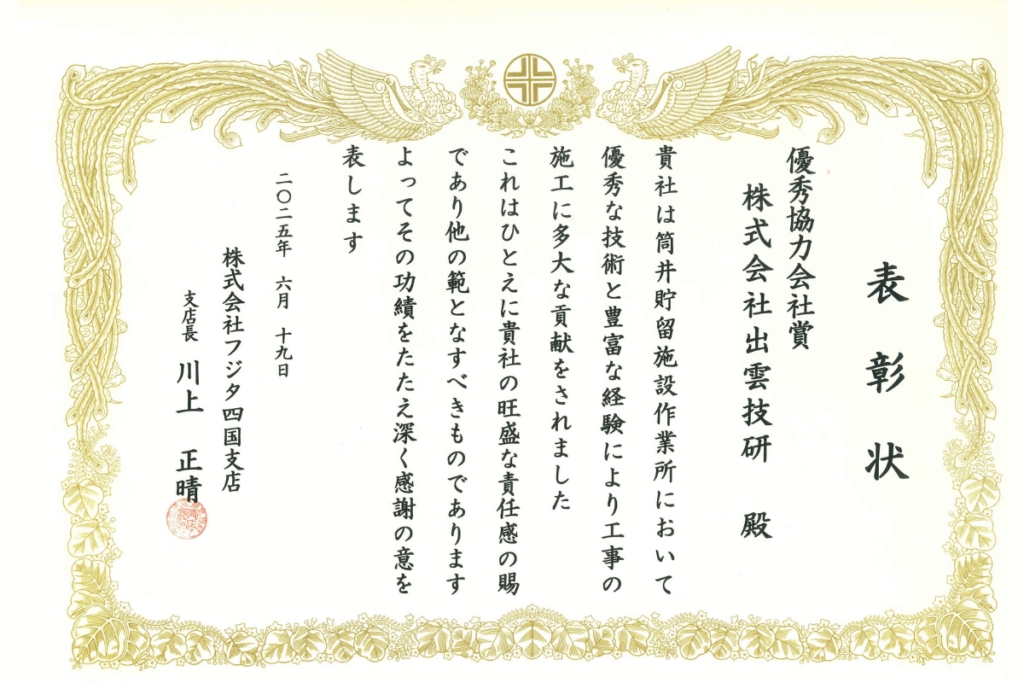 表彰状
優秀協力会社賞
株式会社出雲技研 殿
貴社は筒井貯留施設作業所において
優秀な技術と豊富な経験により工事の
施工に多大な貢献をされました
これはひとえに貴社の旺盛な責任感の賜
であり他の範となすべきものであります
よってその功績をたたえ深く感謝の意を
表します
二〇二五年 六月 十九日
株式会社フジタ四国支店
支店長 川上 正晴